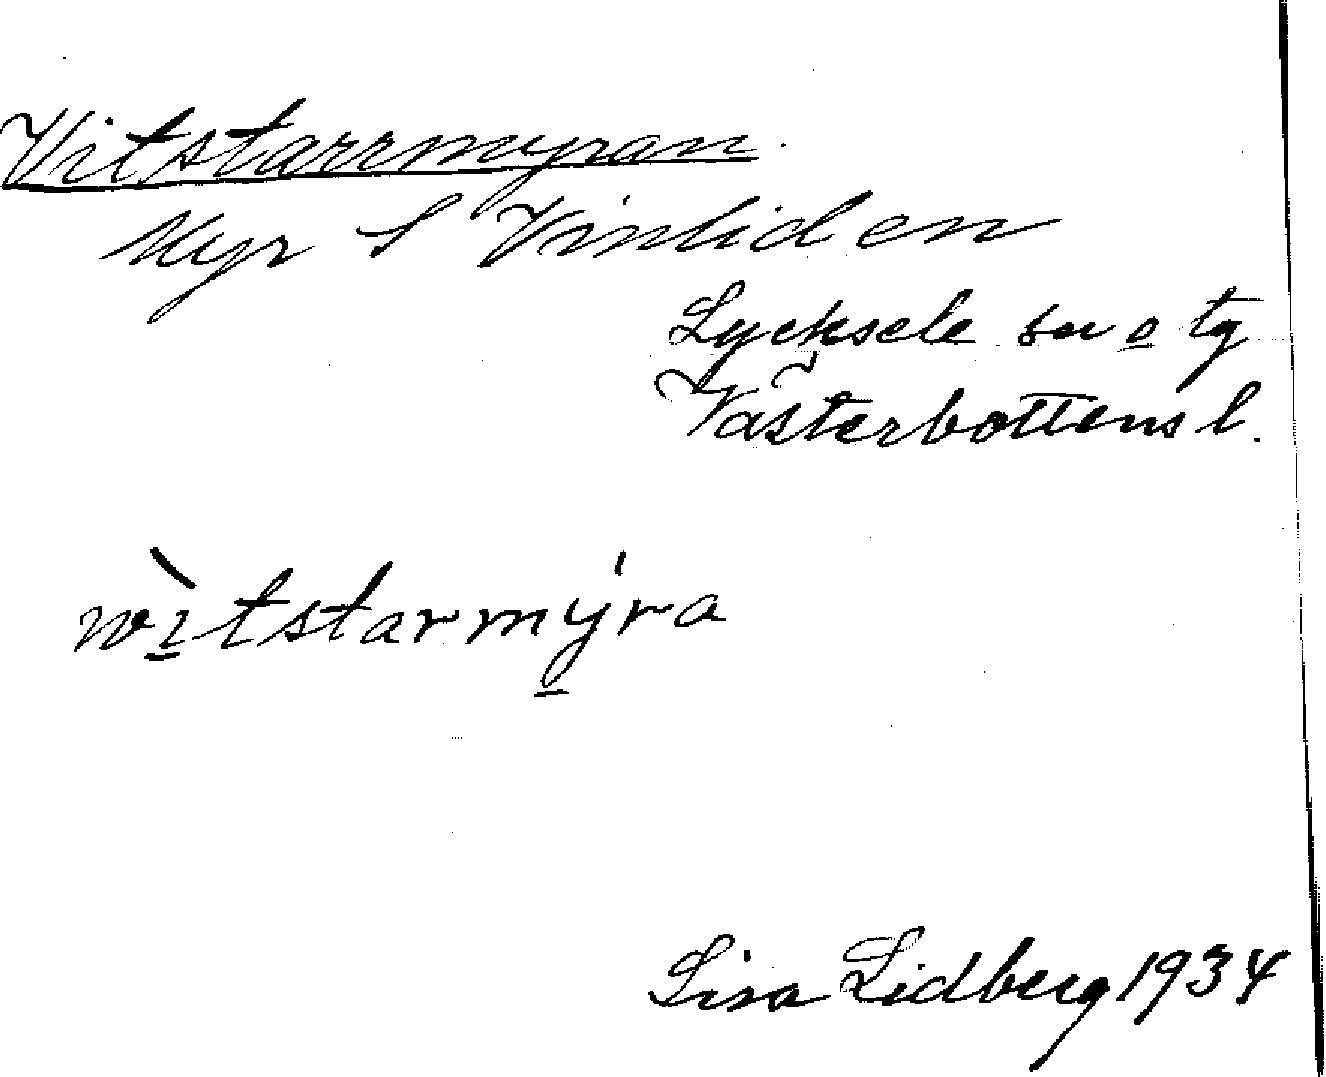 Vitstarrmyran
Myr S Vinliden
Lycksele sn o tg
Västerbottens l.
wìtstarmýra
Lisa Lidberg 1934